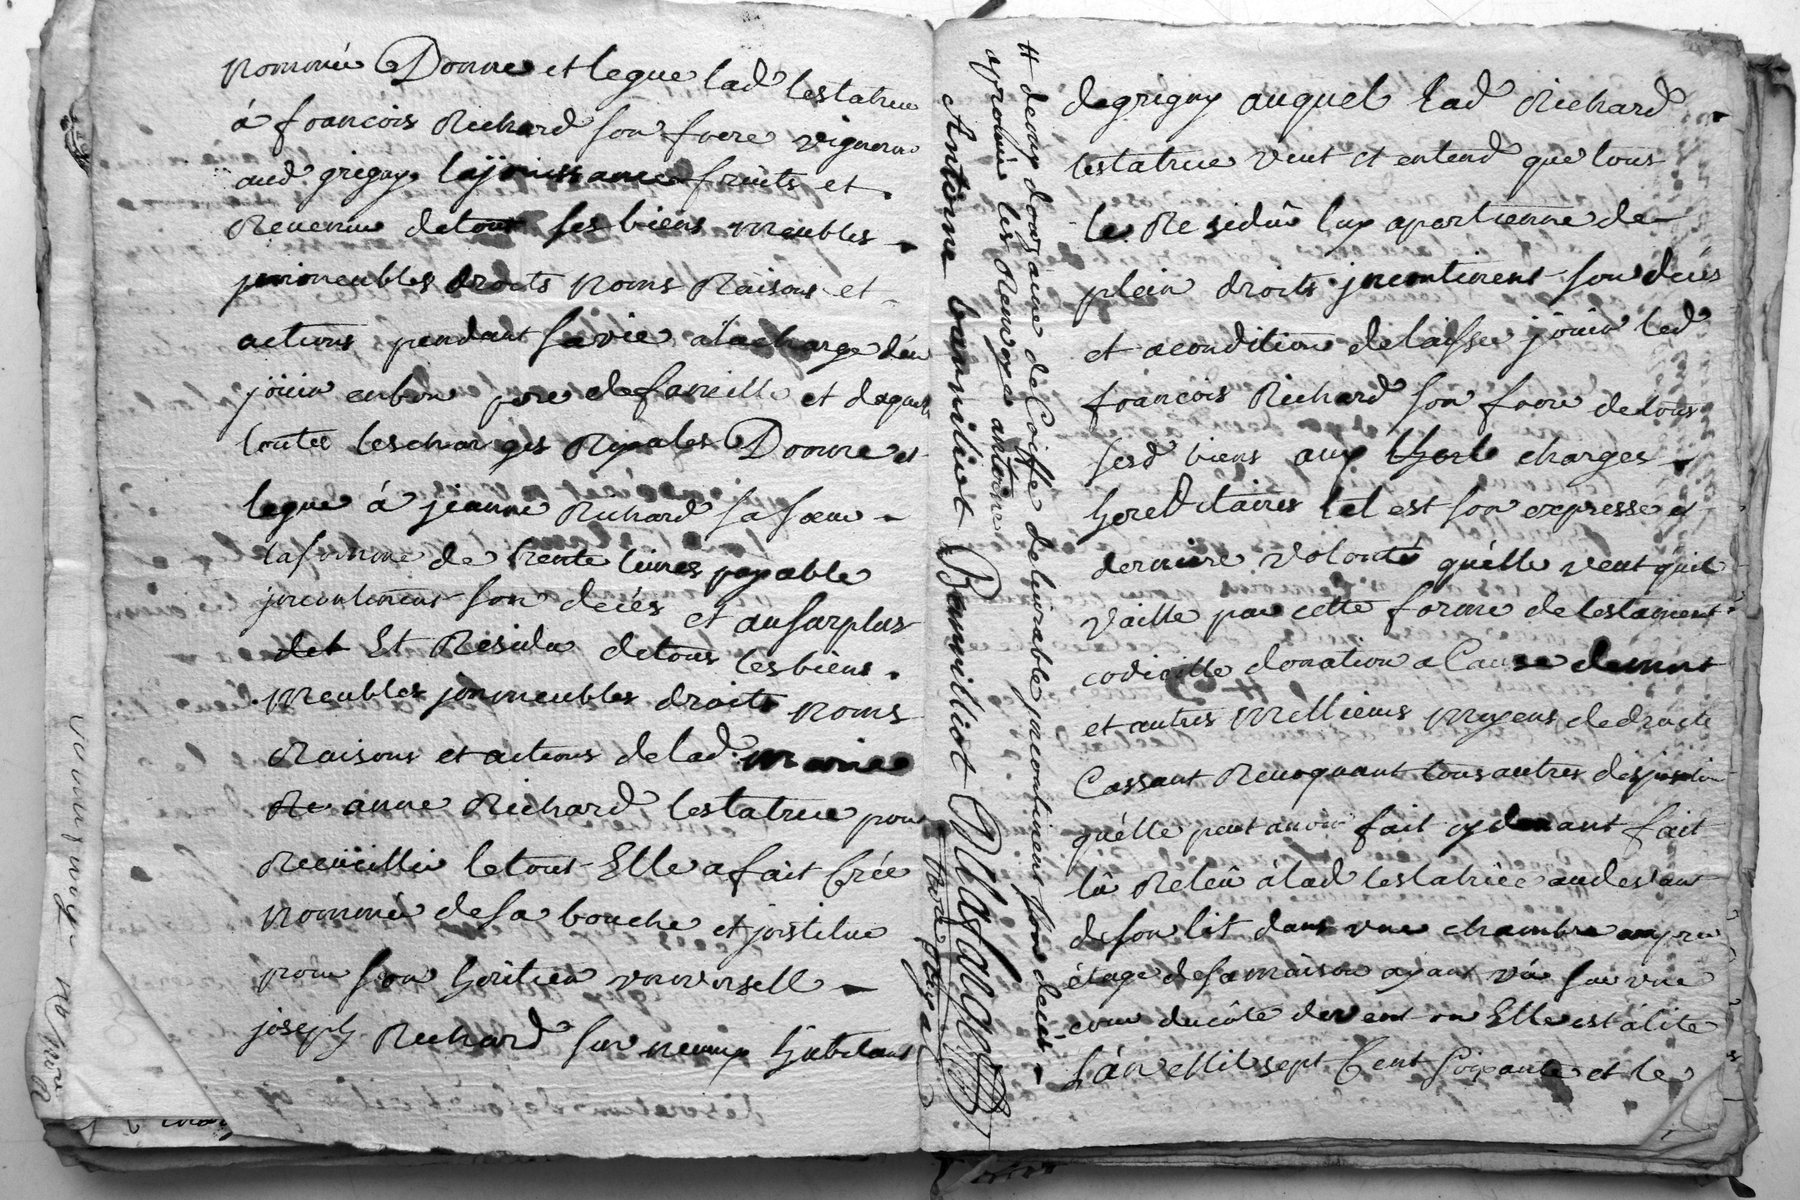 nommée Donne et legue lad testatrice
á francois Richard son frere vigneron
aud grigny lajouissance fruits et
Revenu detous ses biens meubles
jmmeubles droits noms Raisons et
actions pendant savie alacharge den
jöuir enbon pere defamille et depayer
toutes lescharges Royales Donne et
legue á jeanne Richard sa sœur
lasomme de trente livres payable
jncontinent son decés et au surplus
det Et Residu detous ses biens
meubles jmmeubles droits noms
Raisons et actions de lad marie
Re anne Richard testatrice pour
Recüeillir letout Elle a fait Créé
nommé desa bouche et jnstitue
pour son héritier vniversell
joseph Richard son neveux habitant
# deux douzaine de Coiffe delivrable jncontinent son decés
aprouvé les Ranvoye antoine
Antoine banvilliet Banvilliot
degrigny auquel lad Richard
testatrice veut et entend que tous
le Residû luy apartienne de
plein droits jncontinent son deces
et acondition delaisser jöuir led
francois Richard son frere detous
sesd biens aux charges
hereditaires tel est son expresse et
derniere volonté quélle veut quil
vaille par cette forme de testament
codicille donation a Cause demort
et autres mellieurs moyens dedroit
Cassant Revoquant tous autres disposition
quélle peut avoir fait cydevant fait
lû Releû álad testatrice audevant
deson lit dans vne chambre au pre
étage desamaison ayant vüe sur vne
cour ducôté devent ou Elle est álité
L'án Mil sept Cent soixante et le